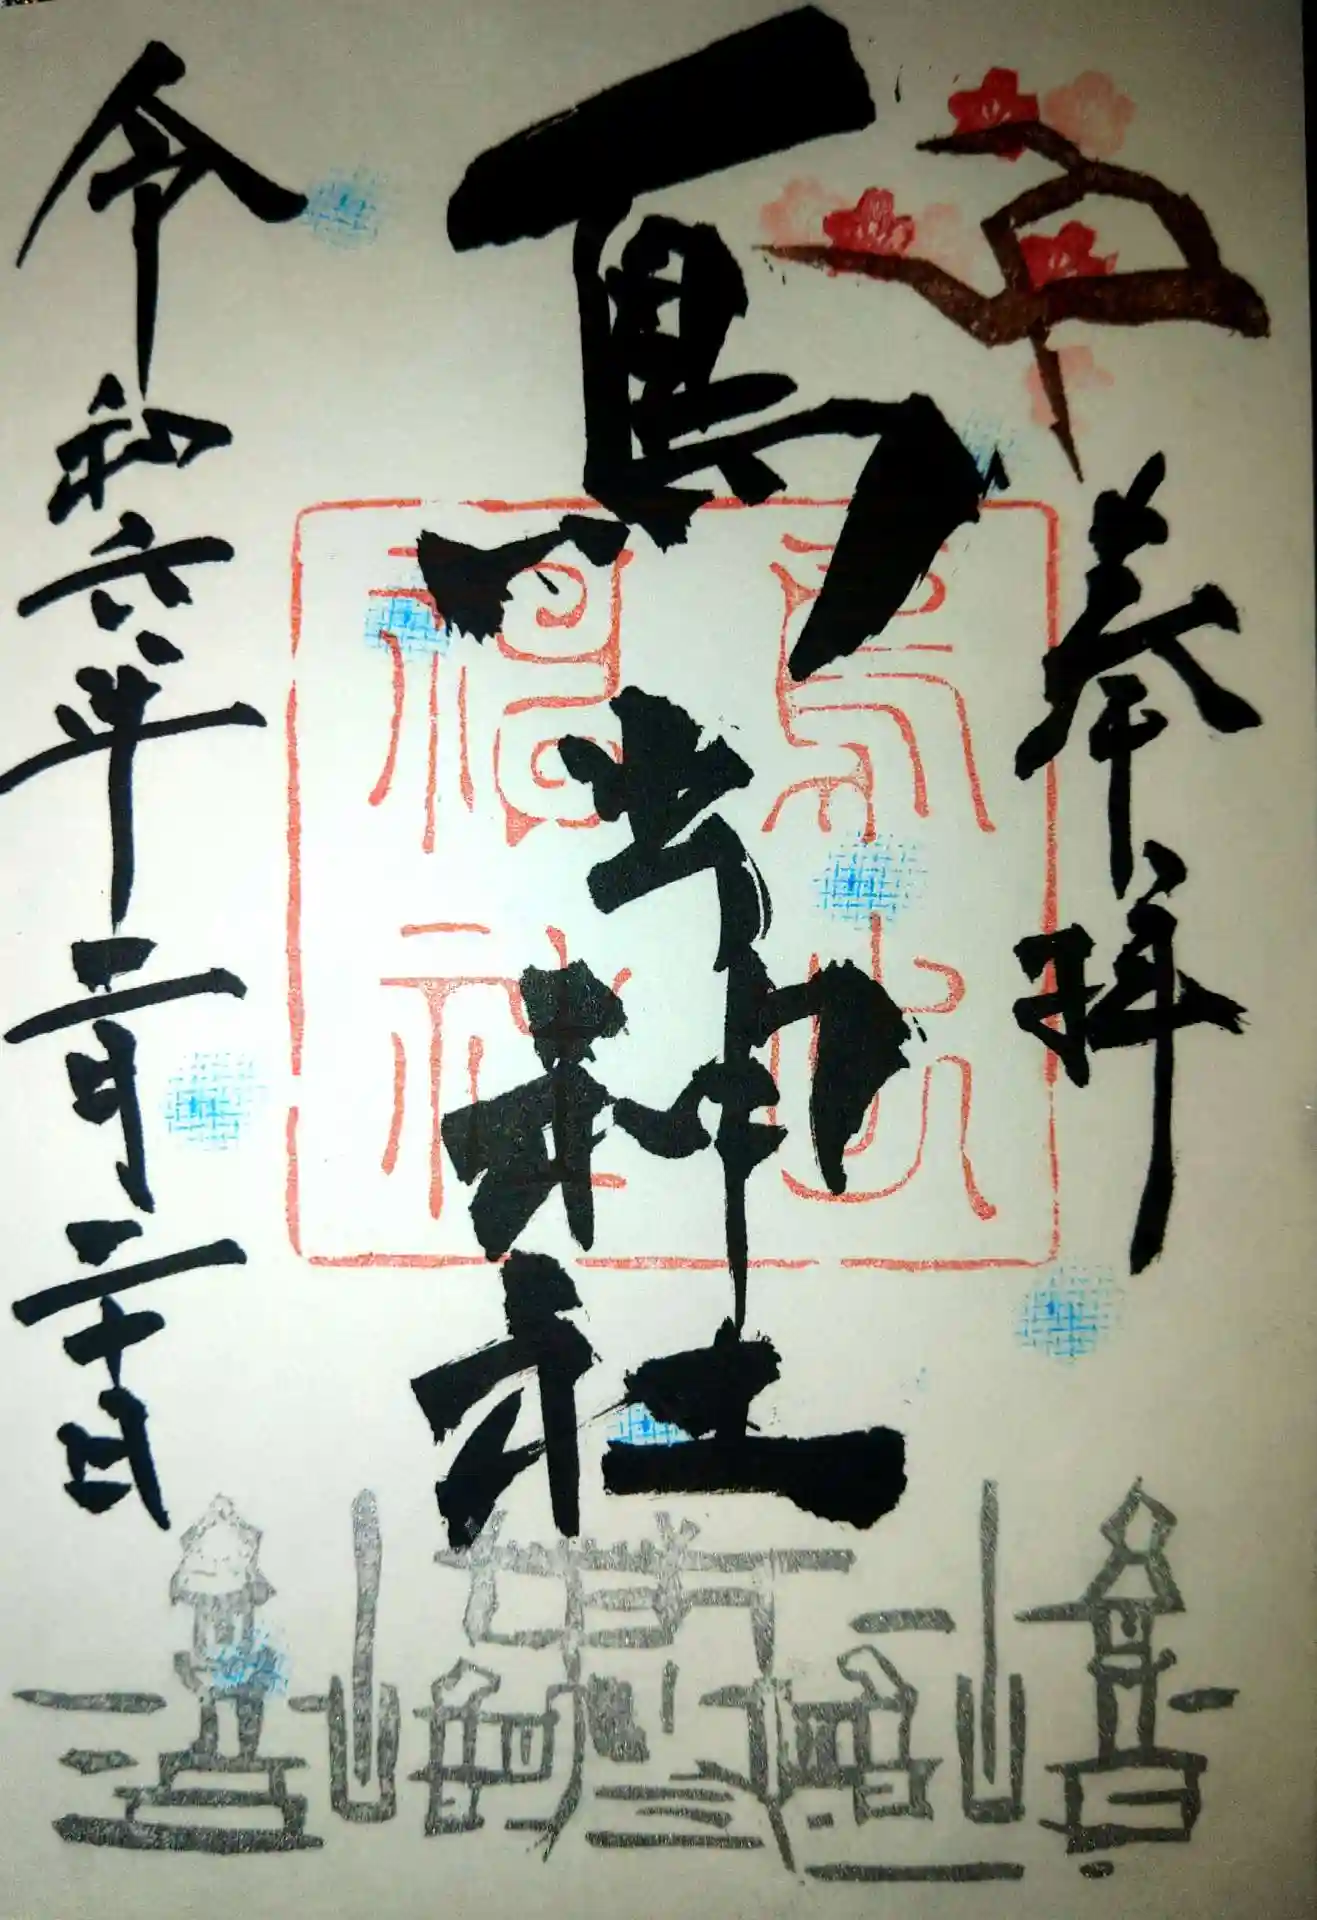 奉拝
鳥出神社
令和六年二月二十日
鳥出
神社